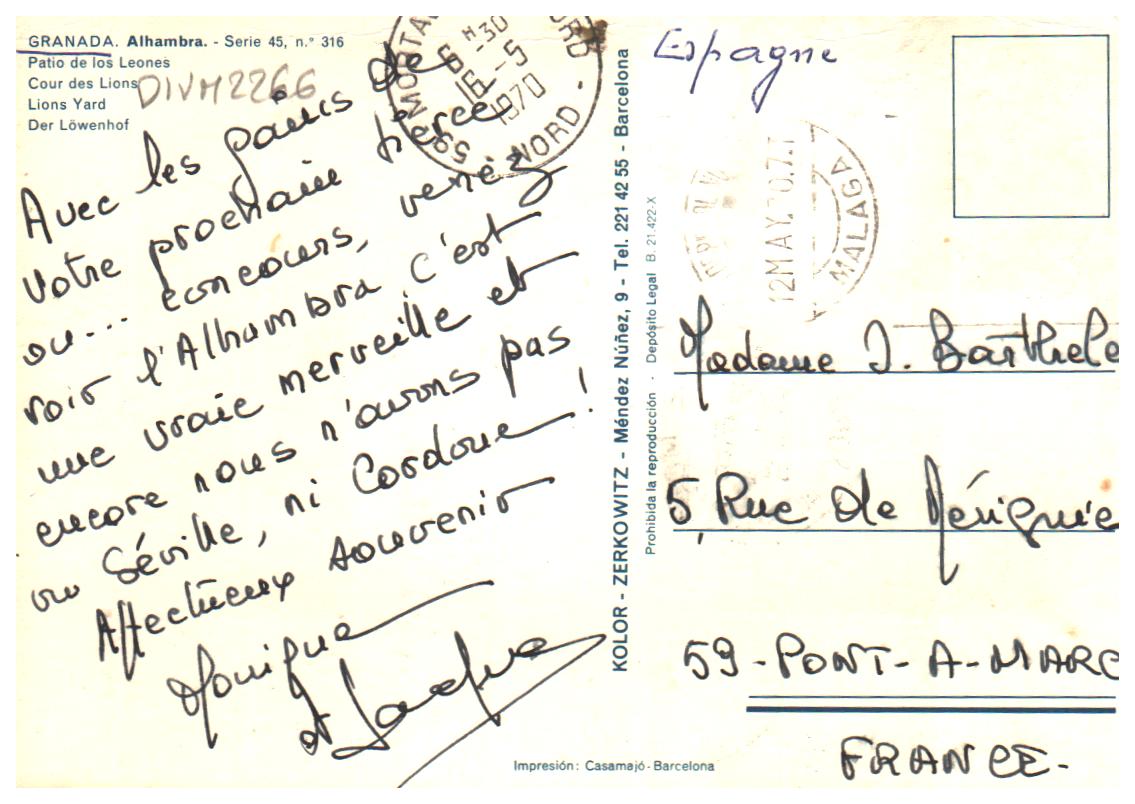 GRANADA. Alhambra. - Serie 45, n.° 316
Patio de los Leones
Cour des Lions
Lions Yard
Der Löwenhof
DIVM2266
Avec les gains de
votre prochain tiercé
ou... concours, venez
voir l'Alhambra c'est
une vraie merveille et
encore nous n'avons pas
vu Séville, ni Cordoue!
Affectueux souvenir
Monique
et Jacques
59 MORTA
6 H -30
16 - 5
1970
NORD -
KOLOR - ZERKOWITZ - Méndez Núñez, 9 - Tel. 221 42 55 - Barcelona
Prohibida la reproducción - Depósito Legal B. 21.422-X
Espagne
12MAY.70.7.T
MALAGA
Madame J. Barthele
5 Rue de Pérignie
59 - PONT - A - MARC
FRANCE.-
Impresión: Casamajó - Barcelona